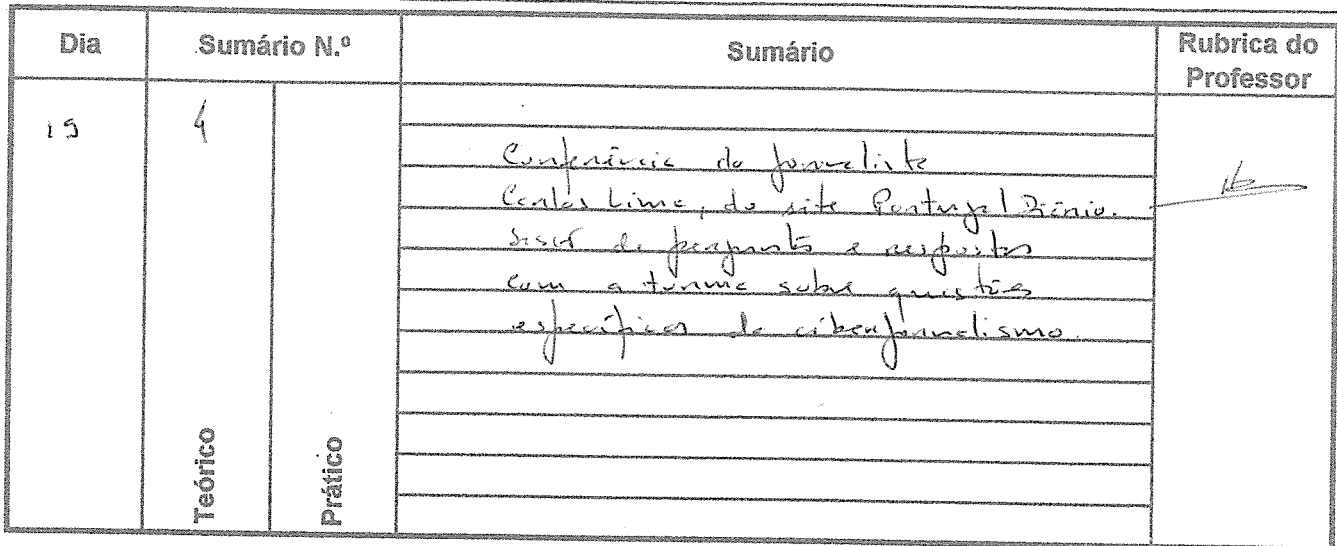 Dia
Sumário N.º
Sumário
Rubrica do
Professor
19
4
Conferência do jornalista
Carlos Lima, do site Portugal Diário.
Sessão de perguntas e respostas
com a turma sobre questões
específicas do ciberjornalismo.
Teórico
Prático